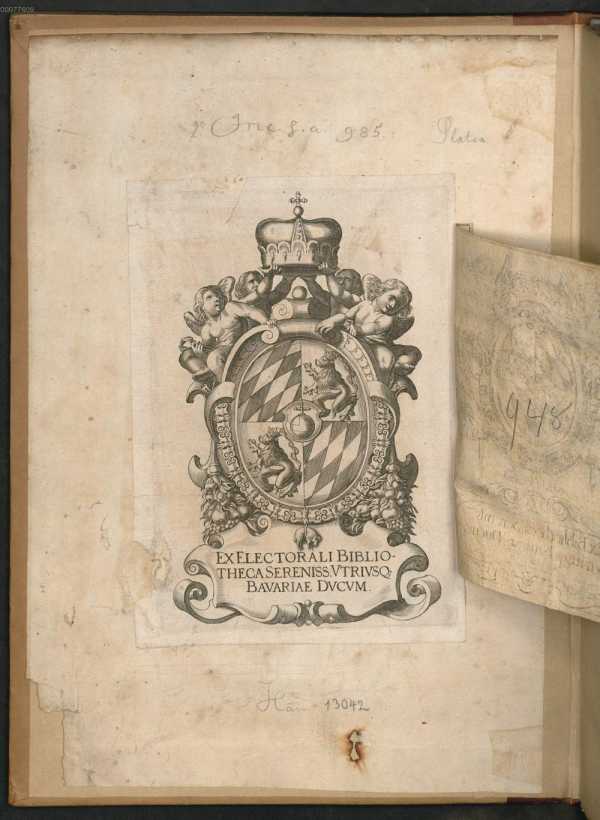 00077609
2° Inc. s. a. 985.
948
EX ELECTORALI BIBLIO-
THECA SERENISS. VTRIVSQ.
BAVARIAE DVCVM.
13042